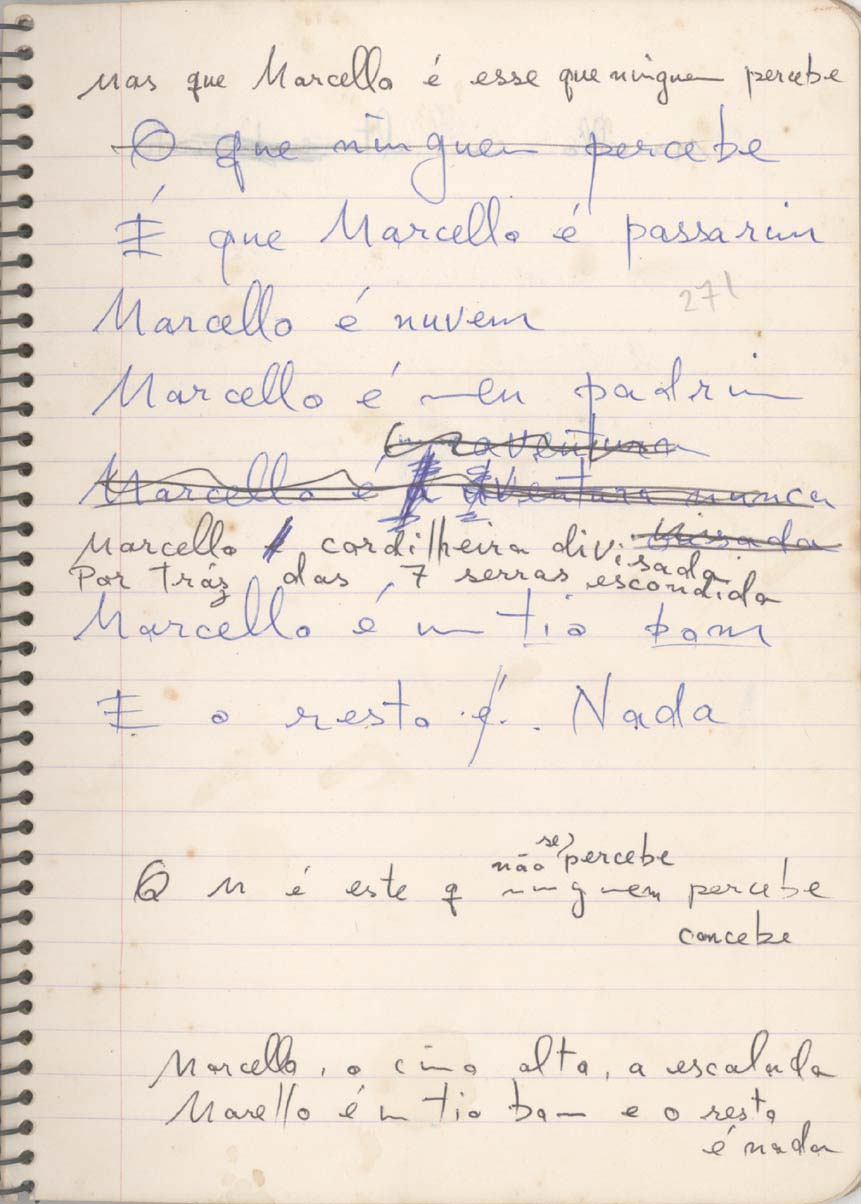 Mas que Marcello é esse que ninguem percebe
O que ninguem percebe
É que Marcello é passarim
271
Marcello é nuvem
Marcello é meu padrim
aventura
Marcello é a aventura nunca
ousada
Marcello cordilheira divisada
Por tráz das 7 serras escondida
Marcello é um tio bom
E o resto é. Nada
não se percebe
Q M é este q ninguem percebe
concebe
Marcello, o cimo alto, a escalada
Marello é um tio bom e o resto
é nada